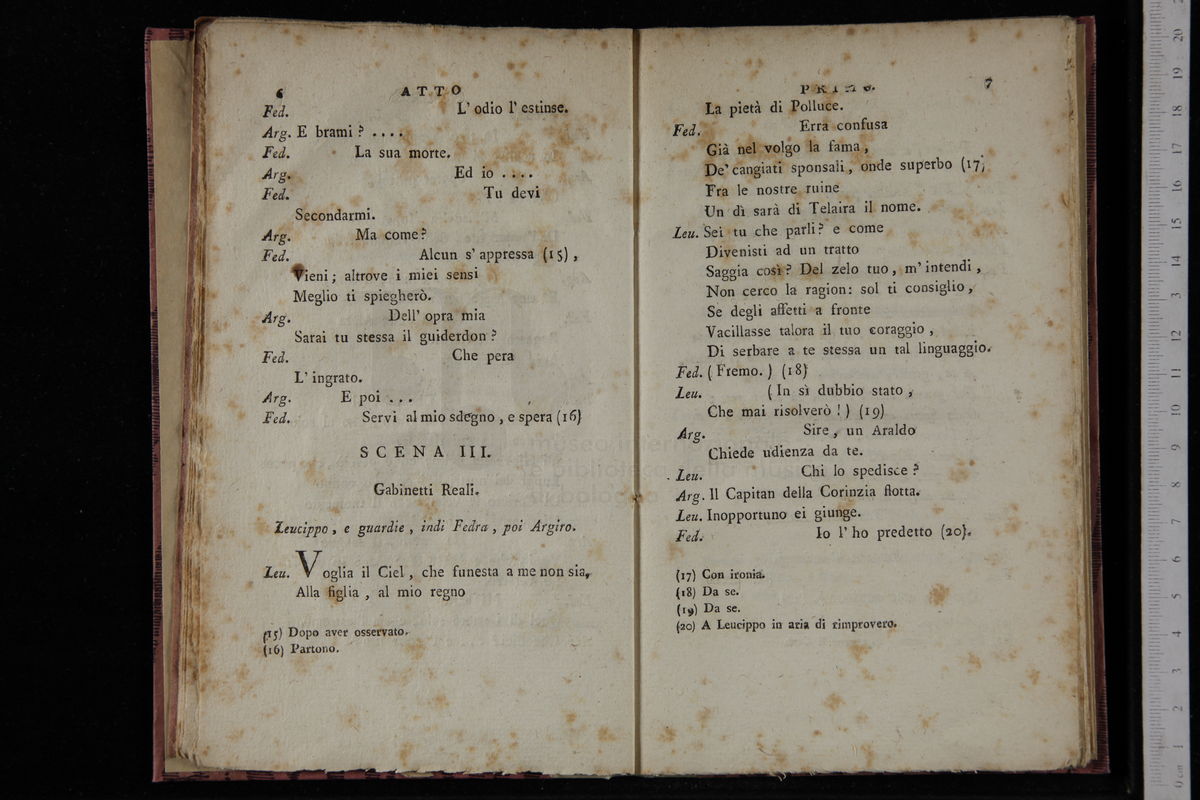 6 ATTO
Fed. L' odio l' estinse.
Arg. E brami ? ....
Fed. La sua morte.
Arg. Ed io ....
Fed. Tu devi
Secondarmi.
Arg. Ma come ?
Fed. Alcun s' appressa (15) ,
Vieni ; altrove i miei sensi
Meglio ti spiegherò.
Arg. Dell' opra mia
Sarai tu stessa il guiderdon ?
Fed. Che pera
L' ingrato.
Arg. E poi ...
Fed. Servi al mio sdegno , e spera (16)
SCENA III.
Gabinetti Reali.
Leucippo , e guardie , indi Fedra , poi Argiro.
Leu. Voglia il Ciel , che funesta a me non sia,
Alla figlia , al mio regno
(15) Dopo aver osservato.
(16) Partono.
PRIMO. 7
La pietà di Polluce.
Fed. Erra confusa
Già nel volgo la fama ,
De' cangiati sponsali , onde superbo (17)
Fra le nostre ruine
Un dì sarà di Telaira il nome.
Leu. Sei tu che parli ? e come
Divenisti ad un tratto
Saggia così ? Del zelo tuo , m' intendi ,
Non cerco la ragion : sol ti consiglio ,
Se degli affetti a fronte
Vacillasse talora il tuo coraggio ,
Di serbare a te stessa un tal linguaggio.
Fed. ( Fremo. ) (18)
Leu. ( In sì dubbio stato ,
Che mai risolverò ! ) (19)
Arg. Sire , un Araldo
Chiede udienza da te.
Leu. Chi lo spedisce ?
Arg. Il Capitan della Corinzia flotta.
Leu. Inopportuno ei giunge.
Fed. Io l' ho predetto (20).
(17) Con ironia.
(18) Da se.
(19) Da se.
(20) A Leucippo in aria di rimprovero.
museo inter
e biblioteca della musica
di bologna
0 cm 1 2 3 4 5 6 7 8 9 10 11 12 13 14 15 16 17 18 19 20